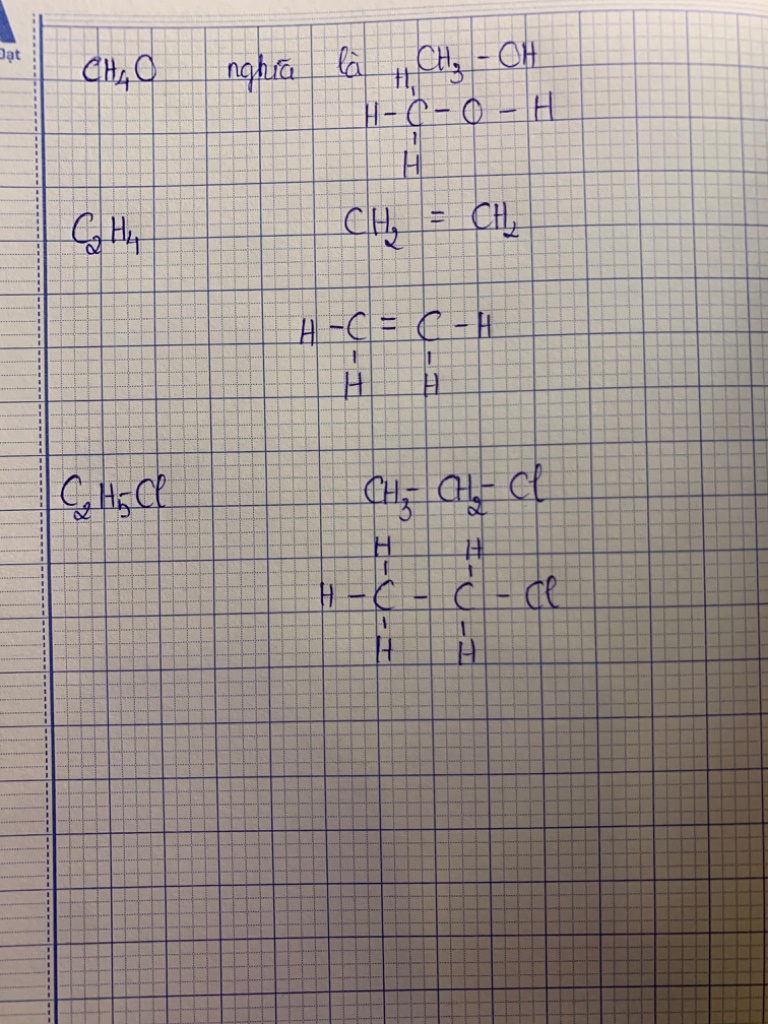 Đạt
CH₄O nghĩa là CH₃ - OH
H
H - C - O - H
H
C₂H₄ CH₂ = CH₂
H - C = C - H
H H
C₂H₅Cl CH₃ - CH₂ - Cl
H H
H - C - C - Cl
H H